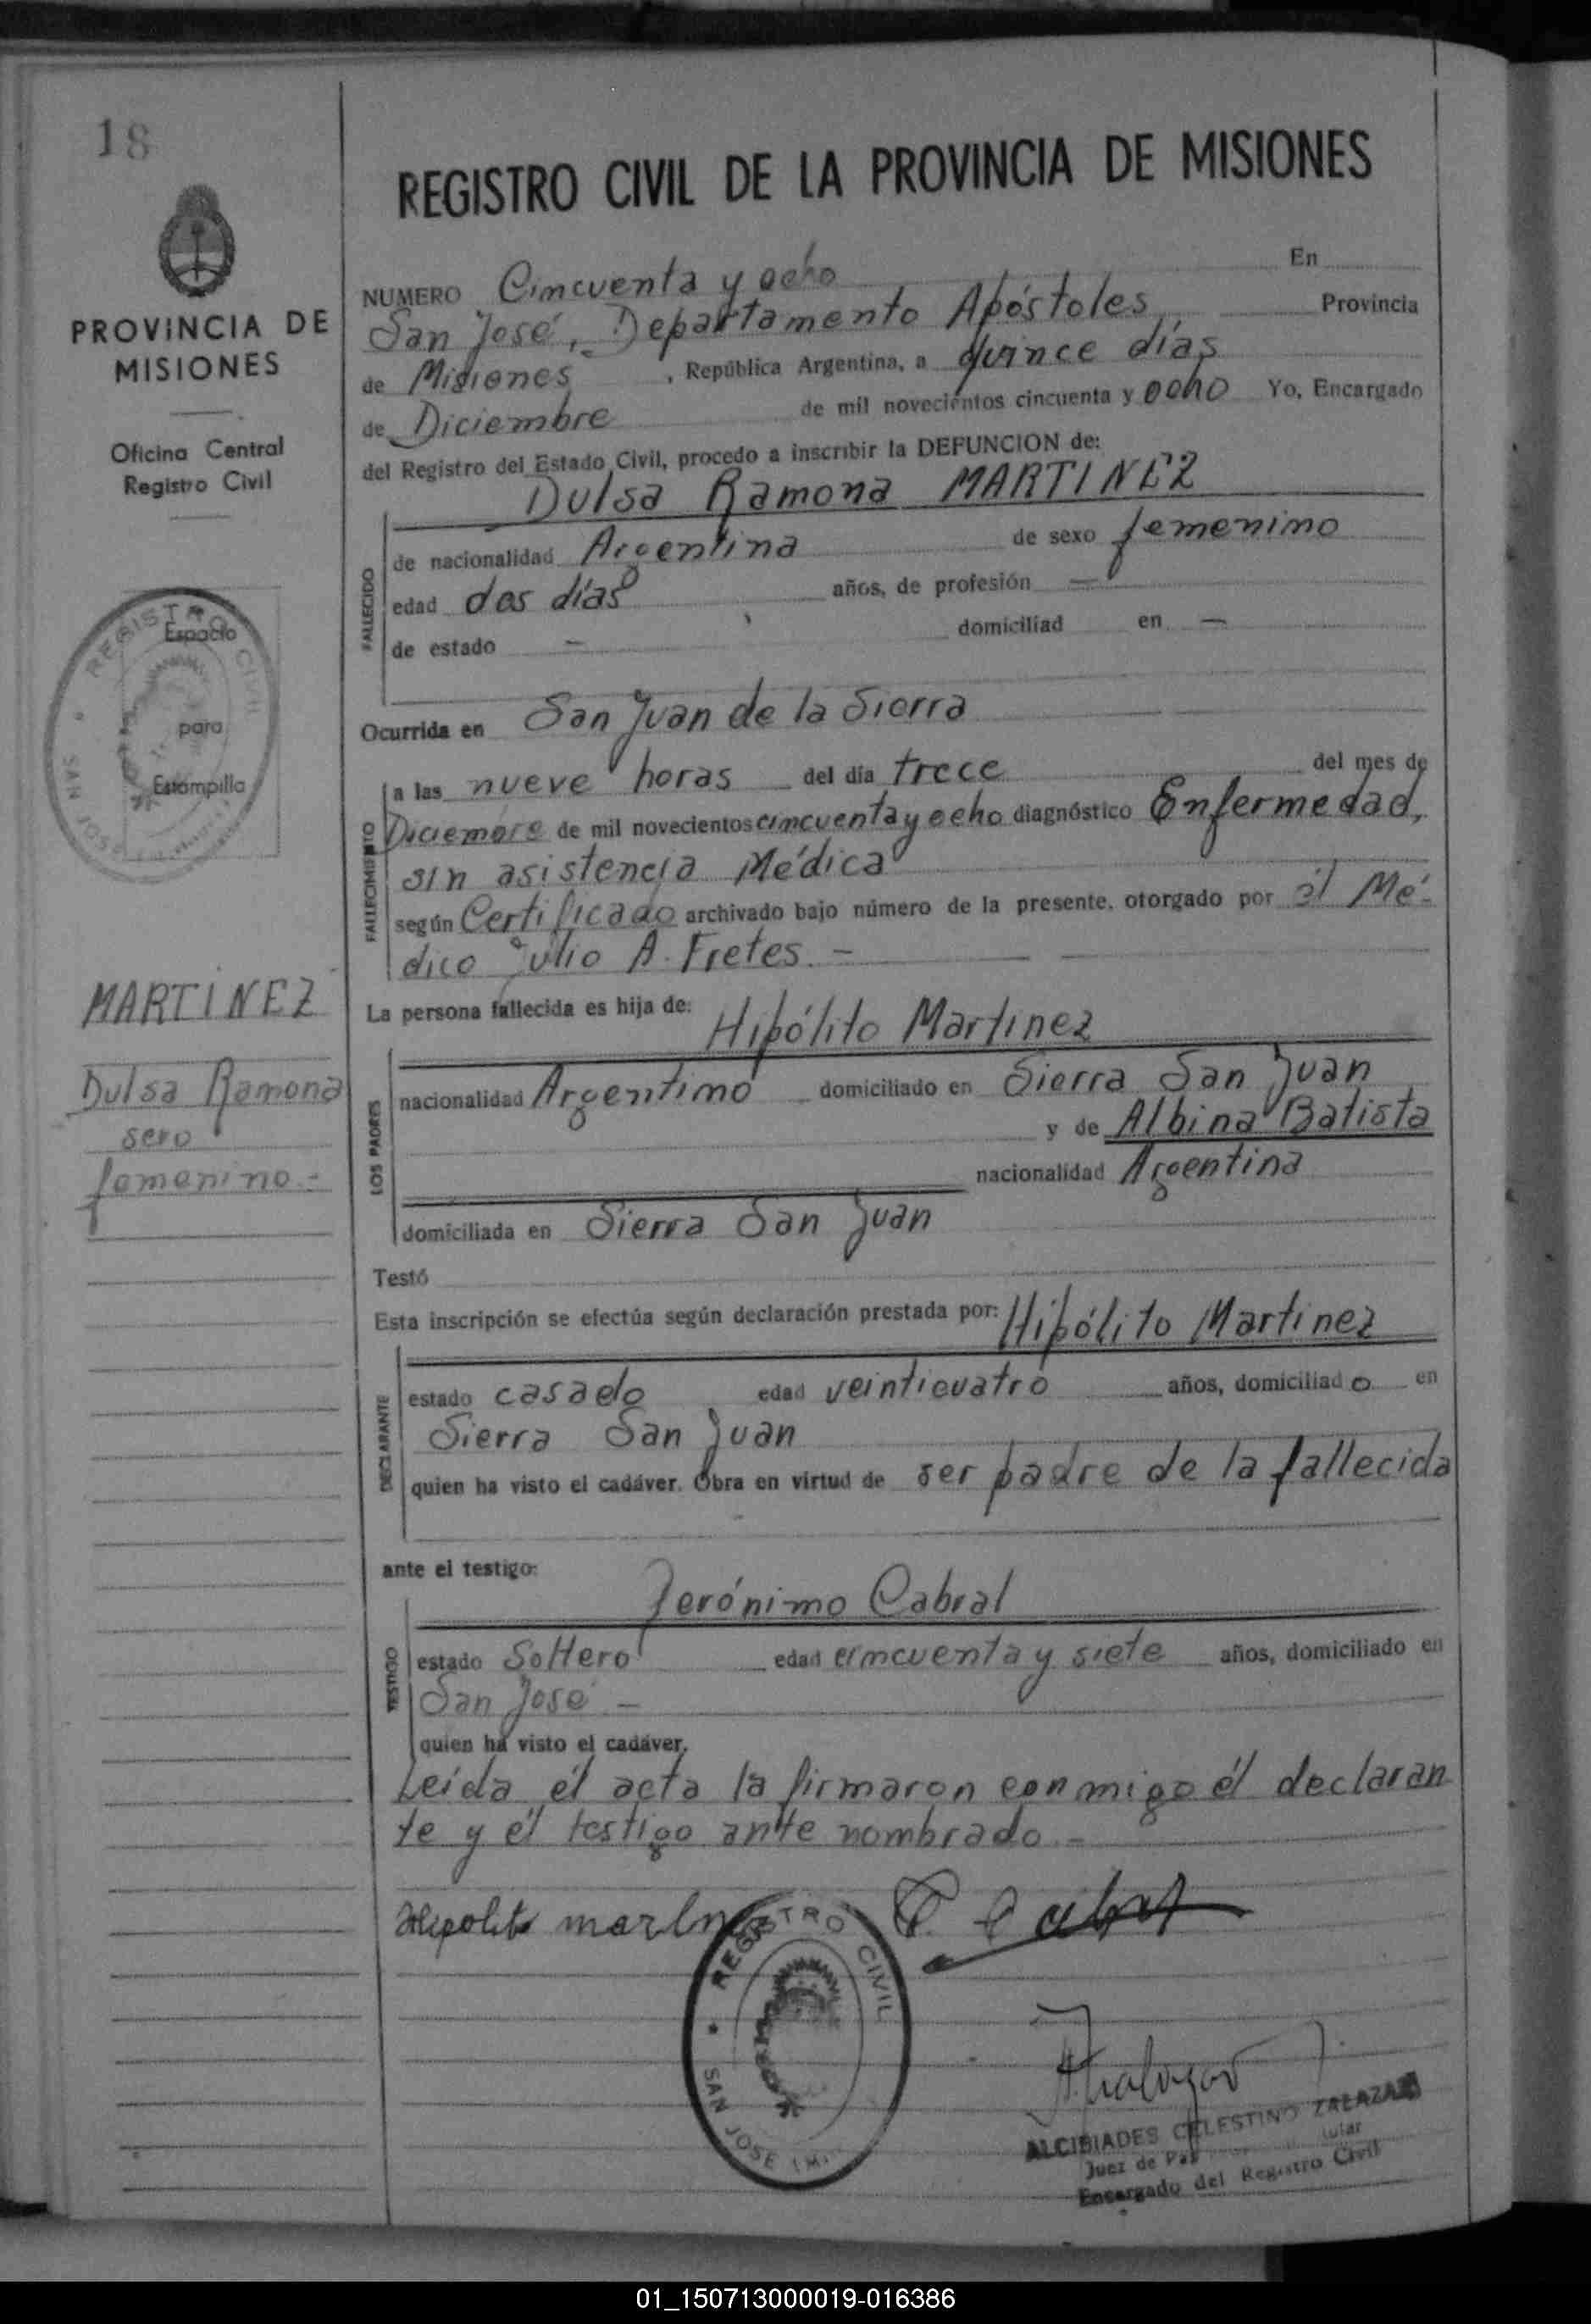 18
REGISTRO CIVIL DE LA PROVINCIA DE MISIONES
PROVINCIA DE
MISIONES
Oficina Central
Registro Civil
Espacio
para
Estampilla
REGISTRO CIVIL
SAN JOSE
MARTINEZ
Dulsa Ramona
sexo
femenino.-
NUMERO Cincuenta y ocho En
San José, Departamento Apóstoles Provincia
de Misiones, República Argentina, a quince días
de Diciembre de mil novecientos cincuenta y ocho Yo, Encargado
del Registro del Estado Civil, procedo a inscribir la DEFUNCION de:
Dulsa Ramona MARTINEZ
FALLECIDO
de nacionalidad Argentina de sexo femenino
edad dos días años, de profesión —
de estado — domiciliad en —
Ocurrida en San Juan de la Sierra
FALLECIMIENTO
a las nueve horas del día trece del mes de
Diciembre de mil novecientos cincuenta y ocho diagnóstico Enfermedad,
sin asistencia Médica
según Certificado archivado bajo número de la presente, otorgado por él Mé-
dico Julio A. Fretes. -
La persona fallecida es hija de:
Hipólito Martinez
LOS PADRES
nacionalidad Argentino domiciliado en Sierra San Juan
y de Albina Batista
nacionalidad Argentina
domiciliada en Sierra San Juan
Testó
Esta inscripción se efectúa según declaración prestada por: Hipólito Martinez
DECLARANTE
estado casado edad veinticuatro años, domiciliado en
Sierra San Juan
quien ha visto el cadáver. Obra en virtud de ser padre de la fallecida
ante el testigo:
Jerónimo Cabral
TESTIGO
estado Soltero edad cincuenta y siete años, domiciliado en
San José -
quien ha visto el cadáver.
Leída él acta la firmaron conmigo él declaran
te y él testigo ante nombrado.-
Hipolito
REGISTRO CIVIL
SAN JOSE (M.
ALCIBIADES CELESTINO ZALAZAR
Juez de Paz
Encargado del Registro Civil
01_150713000019-016386